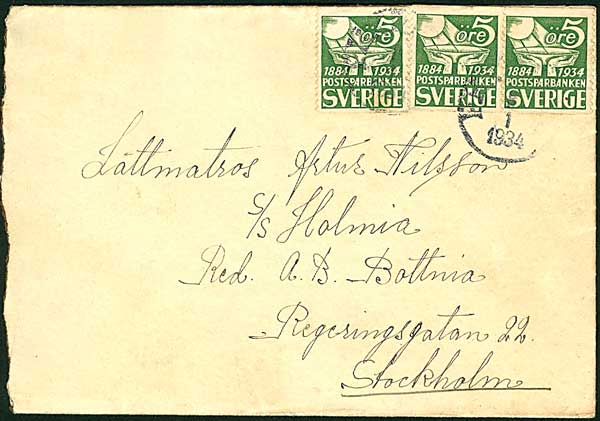 5 öre
1884 1934
POSTSPARBANKEN
SVERIGE
5 öre
1884 1934
POSTSPARBANKEN
SVERIGE
5 öre
1884 1934
POSTSPARBANKEN
SVERIGE
1
1934
Lättmatros Artur Nilsson
S/s Holmia
Red. A. B. Bottnia
Regeringsgatan 22.
Stockholm